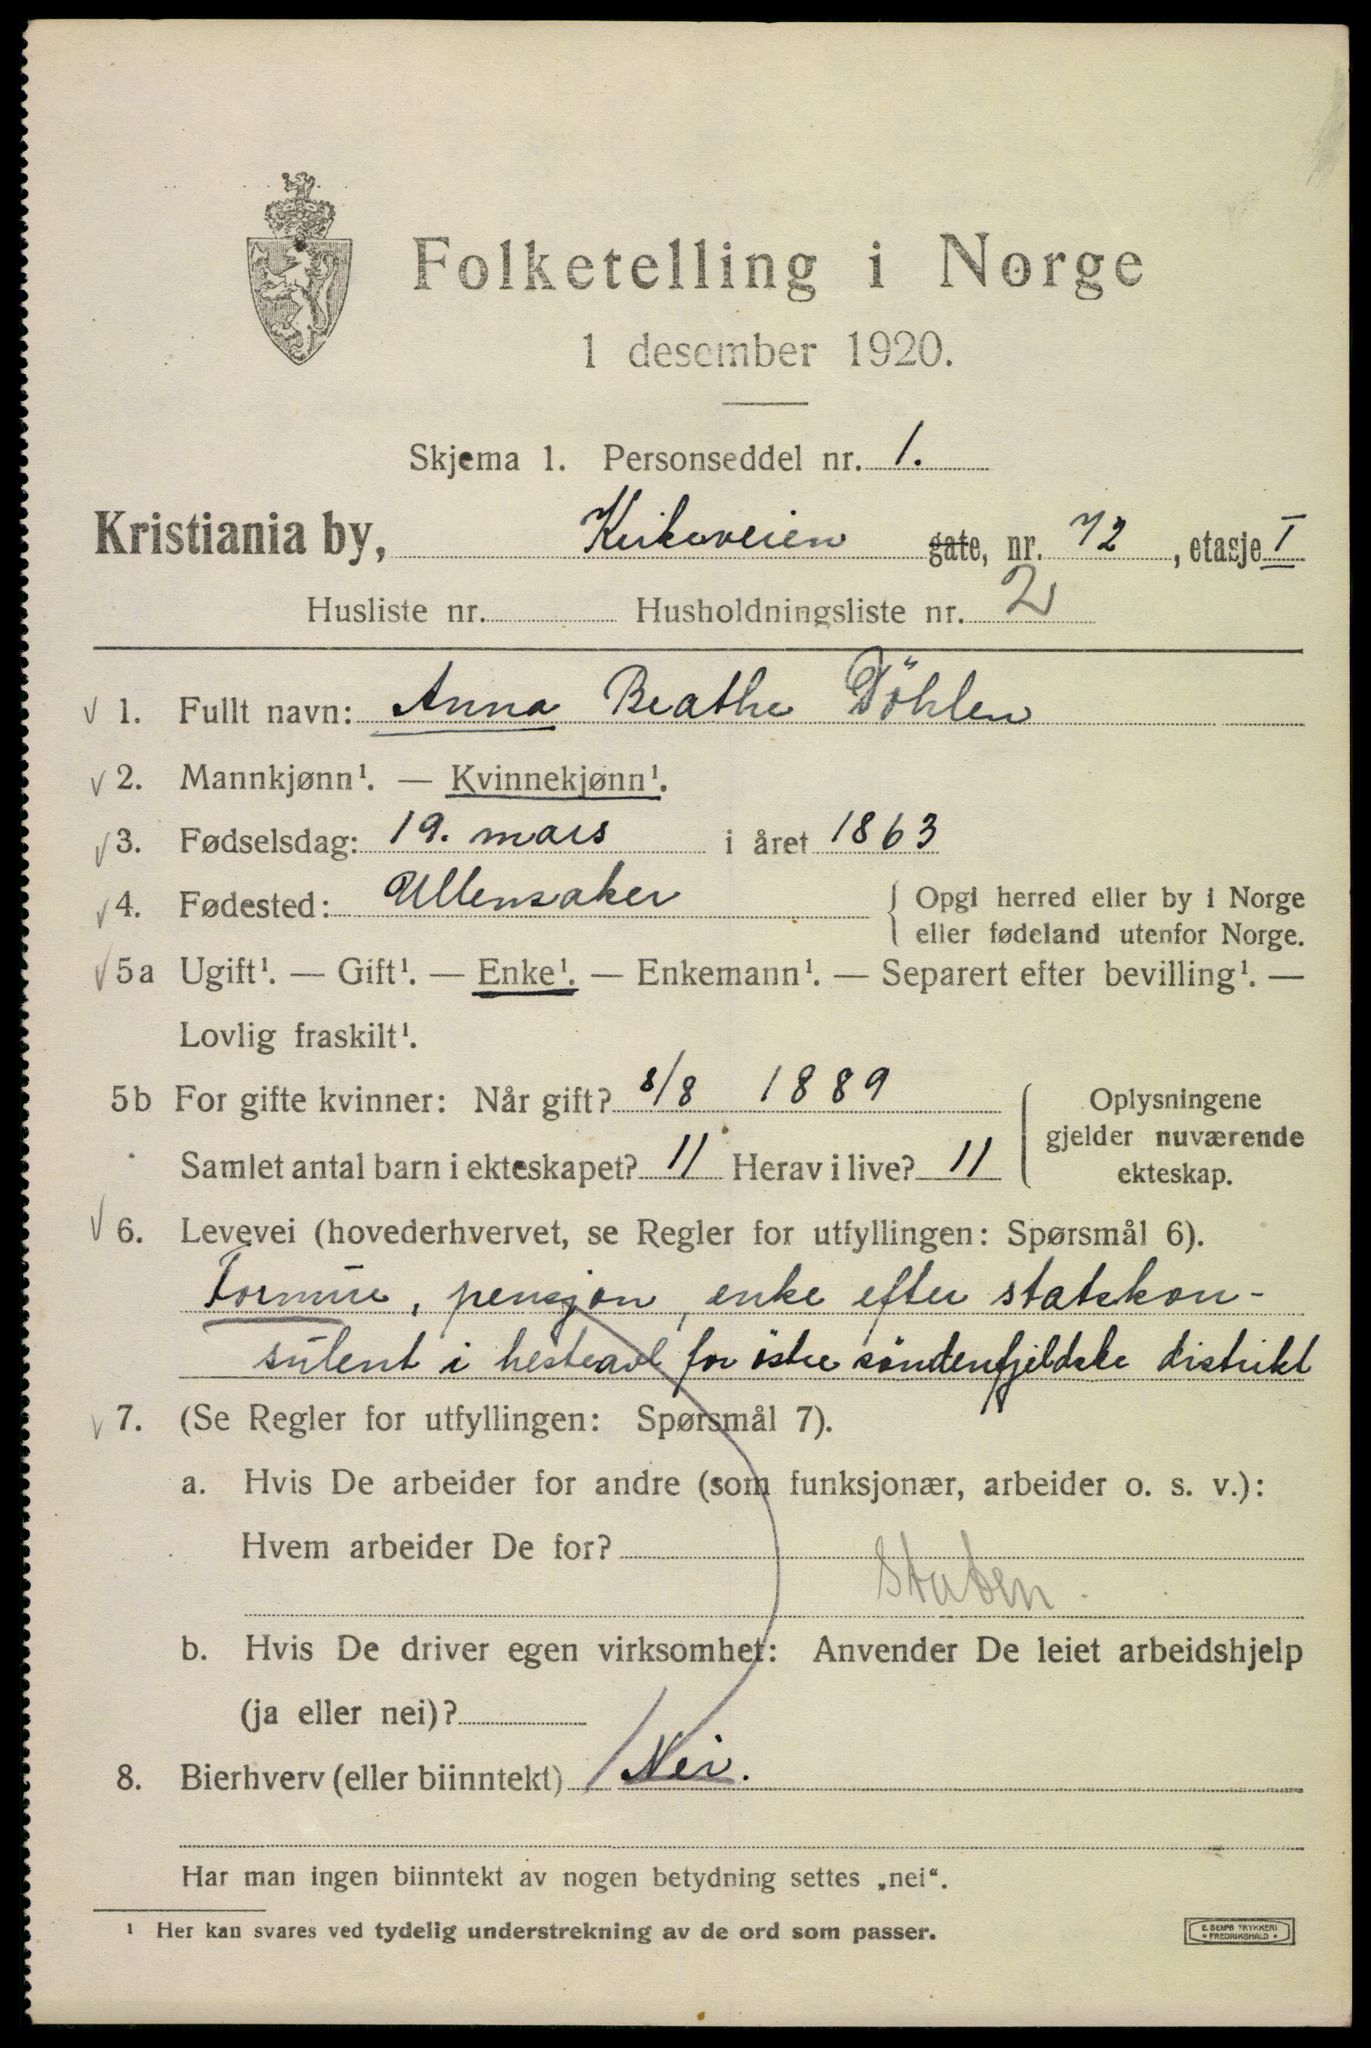 Folketelling i Norge
1 desember 1920.
Skjema 1. Personseddel nr. 1.
Kristiania by, Kirkeveien gate, nr. 72, etasje I
Husliste nr. Husholdningsliste nr. 2
1. Fullt navn: Anna Beathe Döhlen
2. Mannkjønn¹. — Kvinnekjønn¹.
3. Fødselsdag: 19. mars i året 1863
4. Fødested: Ullensaker { Opgi herred eller by i Norge
eller fødeland utenfor Norge.
5a Ugift¹. — Gift¹. — Enke¹. — Enkemann¹. — Separert efter bevilling¹. —
Lovlig fraskilt¹.
5b For gifte kvinner: Når gift? 8/8 1889
Samlet antal barn i ekteskapet? 11 Herav i live? 11
Oplysningene
gjelder nuværende
ekteskap.
6. Levevei (hovederhvervet, se Regler for utfyllingen: Spørsmål 6).
Formue, pensjon, enke efter statskon-
sulent i hesteavl for östre söndenfjeldske distrikt
7. (Se Regler for utfyllingen: Spørsmål 7).
a. Hvis De arbeider for andre (som funksjonær, arbeider o. s. v.):
Hvem arbeider De for?
Staten.
b. Hvis De driver egen virksomhet: Anvender De leiet arbeidshjelp
(ja eller nei)?
8. Bierhverv (eller biinntekt) Nei.
Har man ingen biinntekt av nogen betydning settes „nei“.
¹ Her kan svares ved tydelig understrekning av de ord som passer.
E. SEM'S TRYKKERI
• FREDRIKSHALD •